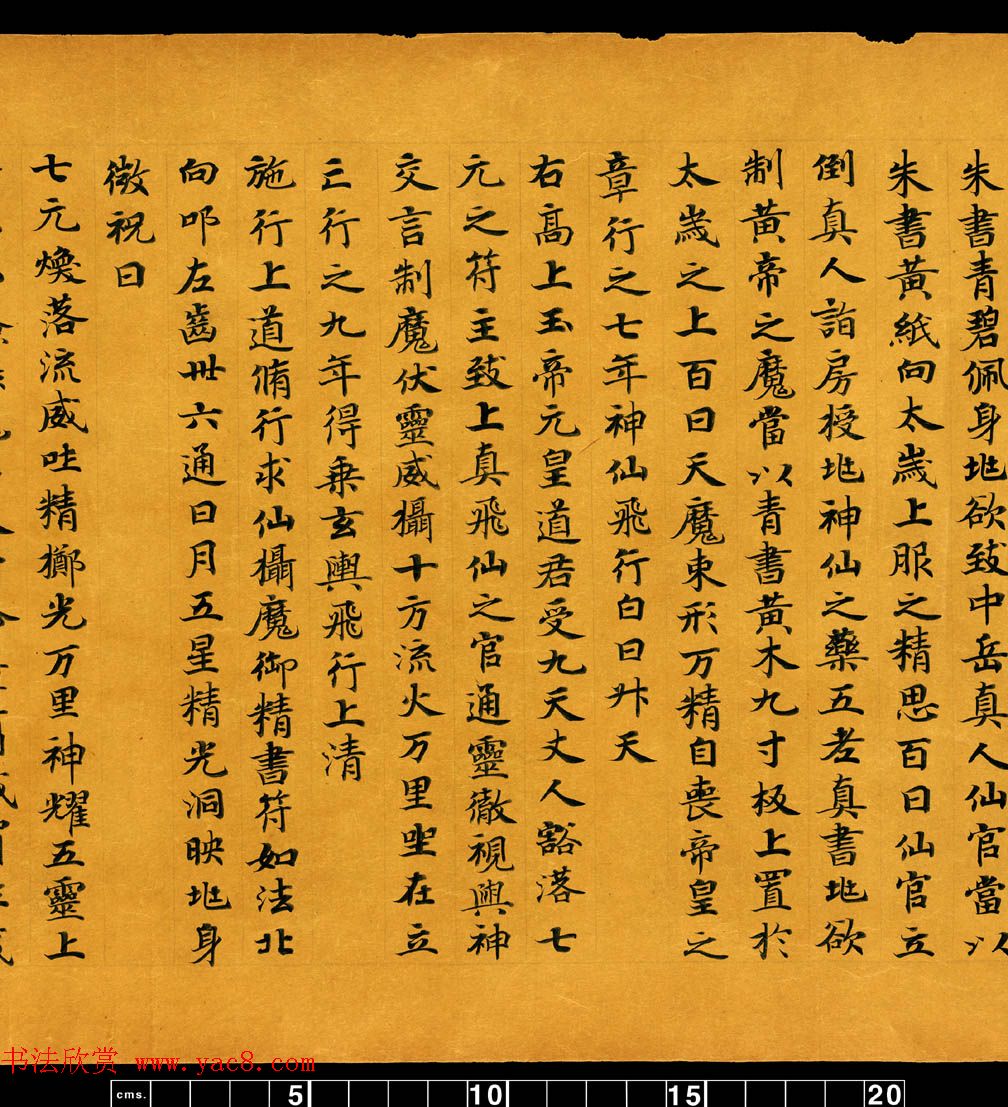 朱書青碧佩身地欲致中岳真人仙官當以
朱書黃紙向太歲上服之精思百日仙官立
倒真人詣房授地神仙之藥五老真書地欲
制黃帝之魔當以青書黃木九寸板上置於
太歲之上百日天魔束形万精自喪帝皇之
章行之七年神仙飛行白日升天
右高上玉帝元皇道君受九天丈人豁落七
元之符主致上真飛仙之官通靈徹視與神
交言制魔伏靈威攝十方流火万里坐在立
亡行之九年得乗玄輿飛行上清
施行上道脩行求仙攝魔御精書符如法北
向叩左齒卅六通日月五星精光洞映地身
微祝曰
七元煥落流威吐精擲光万里神耀五靈上
书法欣赏 www.yac8.com
cms. 5 10 15 20